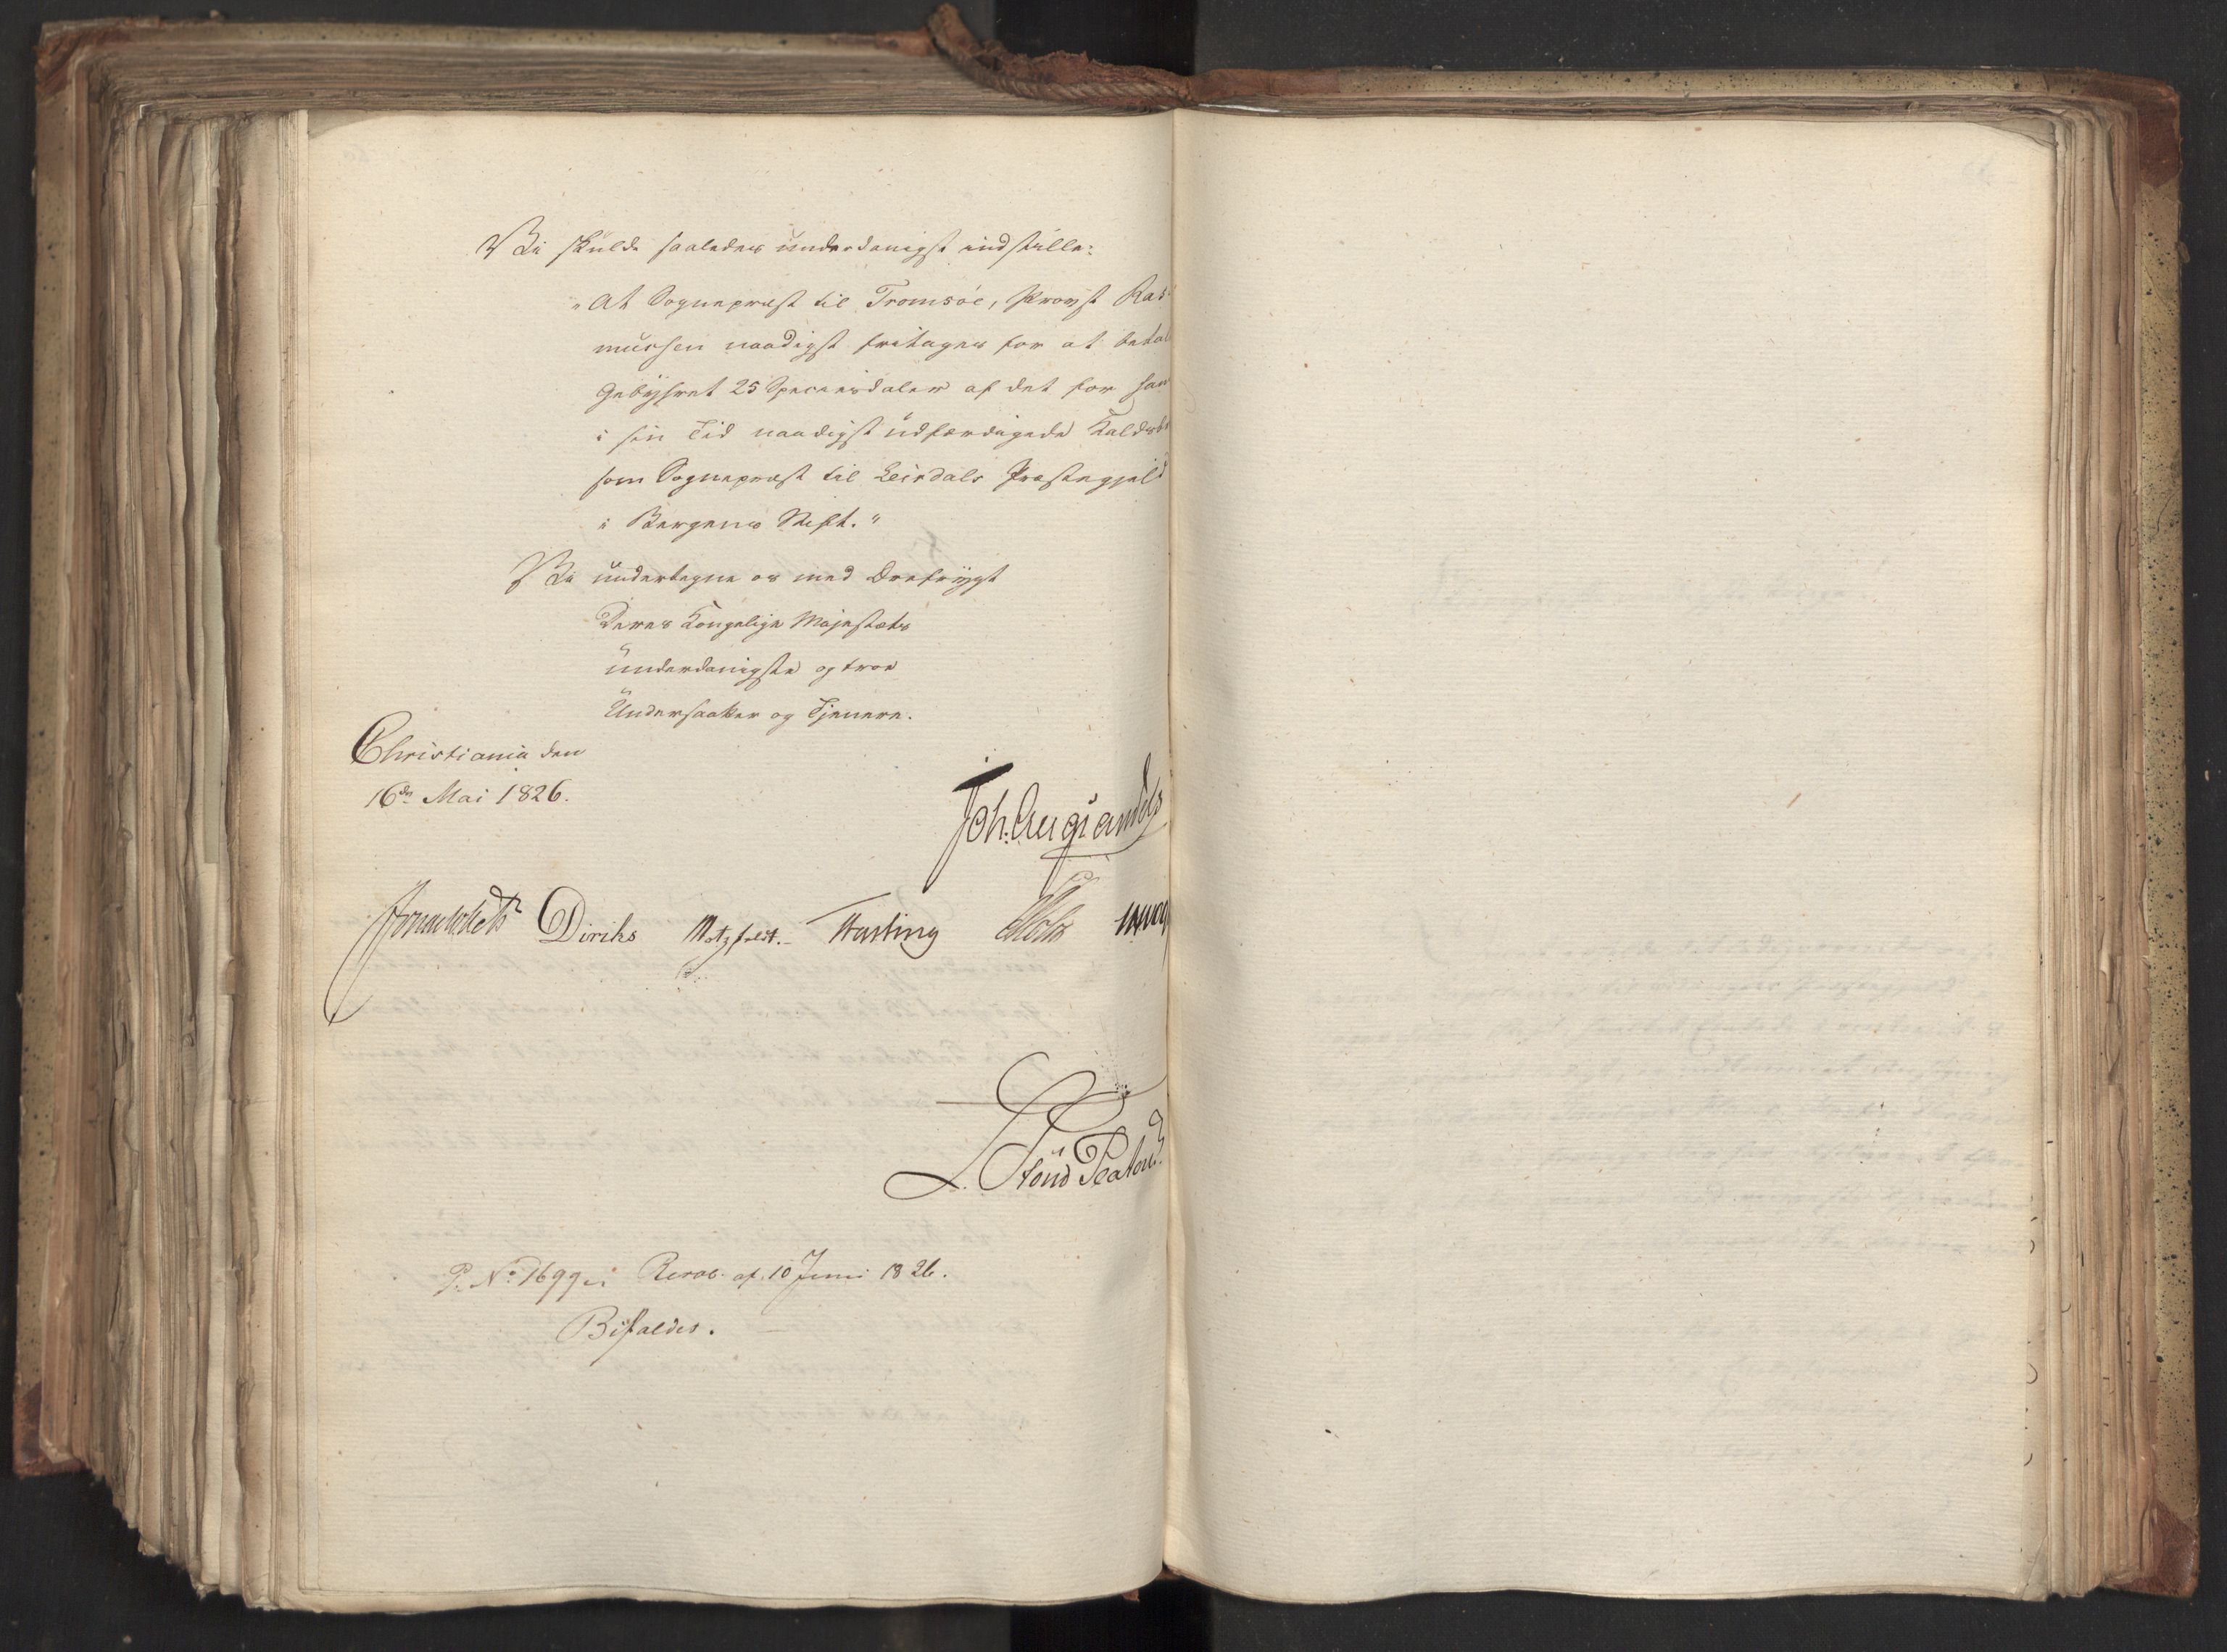 Vi skulde saaledes underdanigst indstille:
„At Sognepræst til Tromsöe, Provst Ras-
mussen naadigst fritages for at betal
Gebyhret 25 Speciesdaler af det for ham
i sin Tid naadigst udfærdigede Kaldsb
som Sognepræst til Leirdals Præstegjeld
i Bergens Stift."
Vi undertegne os med Ærefrygt
Deres Kongelige Majestæts
underdanigste og troe
Undersaatter og Tjenere.
Christiania den
16de Mai 1826.
Joh. Aug Sandels
Jonas Collett Diriks Motzfeldt. Fasting Holst
L. Stoud Platou
P. No 1699 i Resol. af 10 Juni 1826.
Bifaldes.